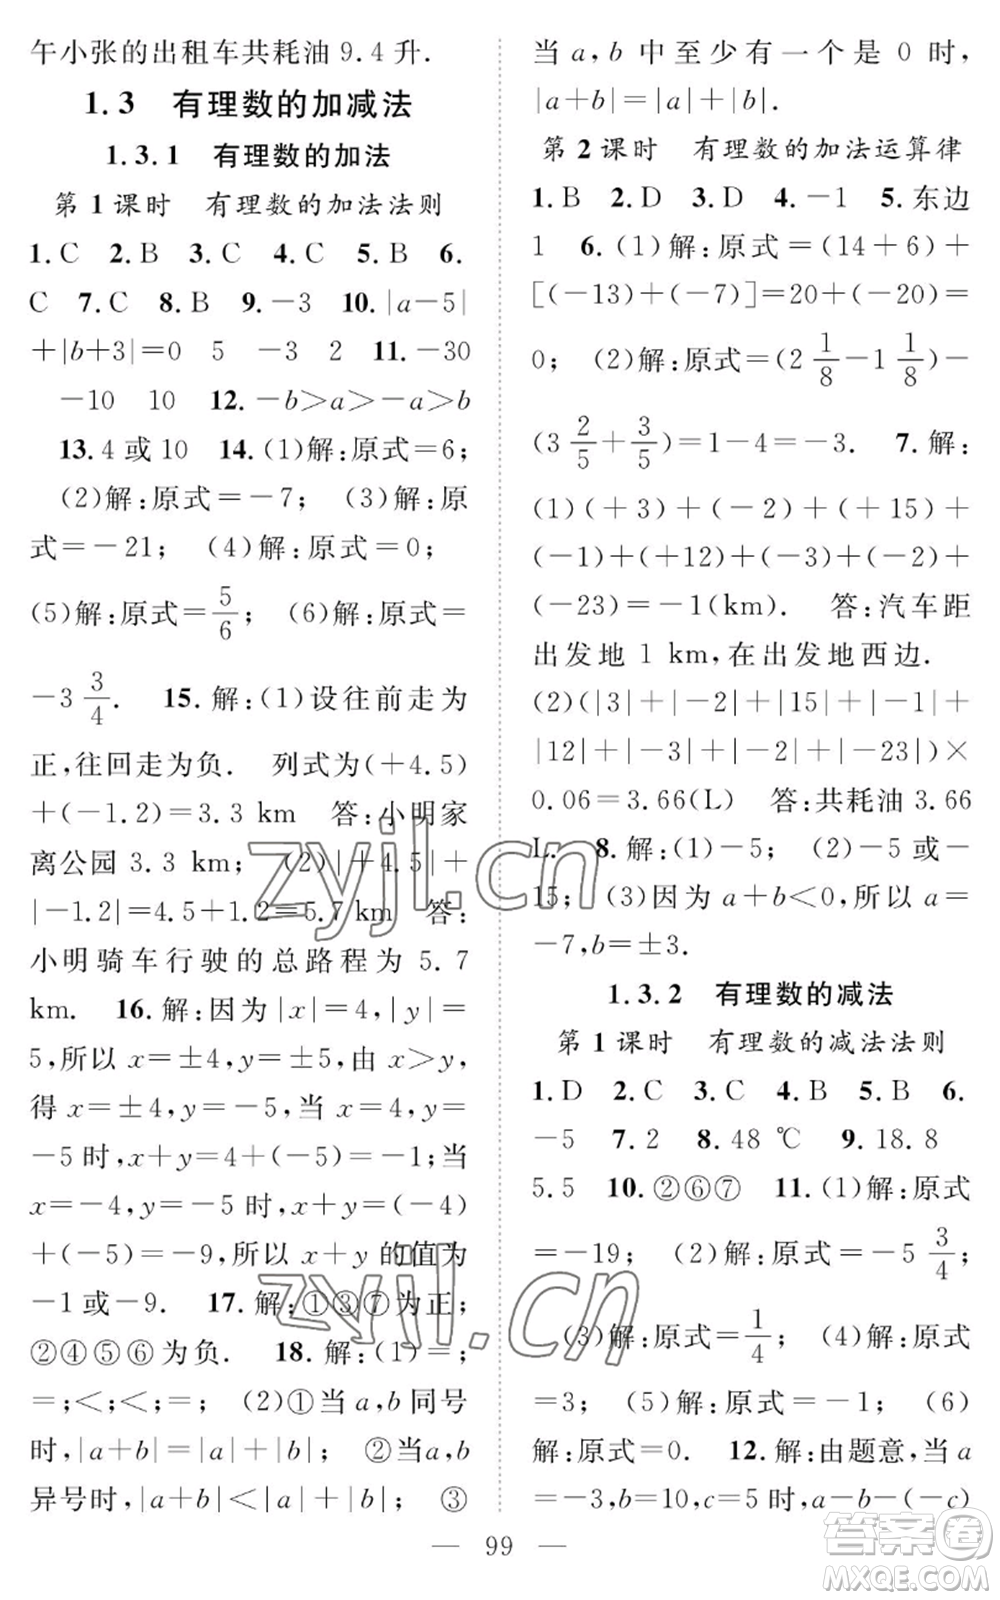 午小张的出租车共耗油 9.4 升.
1.3 有理数的加减法
1.3.1 有理数的加法
第 1 课时 有理数的加法法则
1. C 2. B 3. C 4. C 5. B 6.
C 7. C 8. B 9. －3 10. |a－5|
＋|b＋3|＝0 5 －3 2 11. －30
－10 10 12. －b＞a＞－a＞b
13. 4 或 10 14. (1)解:原式＝6;
(2)解:原式＝－7; (3)解:原
式＝－21; (4)解:原式＝0;
(5)解:原式＝5/6; (6)解:原式＝
－3 3/4. 15. 解:(1)设往前走为
正,往回走为负. 列式为(＋4.5)
＋(－1.2)＝3.3 km 答:小明家
离公园 3.3 km; (2)|＋4.5|＋
|－1.2|＝4.5＋1.2＝5.7 km 答:
小明骑车行驶的总路程为 5.7
km. 16. 解:因为|x|＝4,|y|＝
5,所以 x＝±4,y＝±5,由 x＞y,
得 x＝±4,y＝－5,当 x＝4,y＝
－5 时,x＋y＝4＋(－5)＝－1;当
x＝－4,y＝－5 时,x＋y＝(－4)
＋(－5)＝－9,所以 x＋y 的值为
－1 或－9. 17. 解:①③⑦为正;
②④⑤⑥为负. 18. 解:(1)＝;
＝;＜;＜;＝; (2)①当 a,b 同号
时,|a＋b|＝|a|＋|b|; ②当a,b
异号时,|a＋b|＜|a|＋|b|; ③
当 a,b 中至少有一个是 0 时,
|a＋b|＝|a|＋|b|.
第 2 课时 有理数的加法运算律
1. B 2. D 3. D 4. －1 5. 东边
1 6. (1)解:原式＝(14＋6)＋
[(－13)＋(－7)]＝20＋(－20)＝
0; (2)解:原式＝(2 1/8－1 1/8)－
(3 2/5＋3/5)＝1－4＝－3. 7. 解:
(1)(＋3)＋(－2)＋(＋15)＋
(－1)＋(＋12)＋(－3)＋(－2)＋
(－23)＝－1(km). 答:汽车距
出发地 1 km,在出发地西边.
(2)(|3|＋|－2|＋|15|＋|－1|＋
|12|＋|－3|＋|－2|＋|－23|)×
0.06＝3.66(L) 答:共耗油 3.66
L. 8. 解:(1)－5; (2)－5 或－
15; (3)因为 a＋b＜0,所以 a＝
－7,b＝±3.
1.3.2 有理数的减法
第 1 课时 有理数的减法法则
1. D 2. C 3. C 4. B 5. B 6.
－5 7. 2 8. 48 ℃ 9. 18.8
5.5 10. ②⑥⑦ 11. (1)解:原式
＝－19; (2)解:原式＝－5 3/4;
(3)解:原式＝1/4; (4)解:原式
＝3; (5)解:原式＝－1; (6)
解:原式＝0. 12. 解:由题意,当 a
＝－3,b＝10,c＝5 时,a－b－(－c)
— 99 —
zyjl.cn
zyjl.cn
答案圈
MXQE.COM